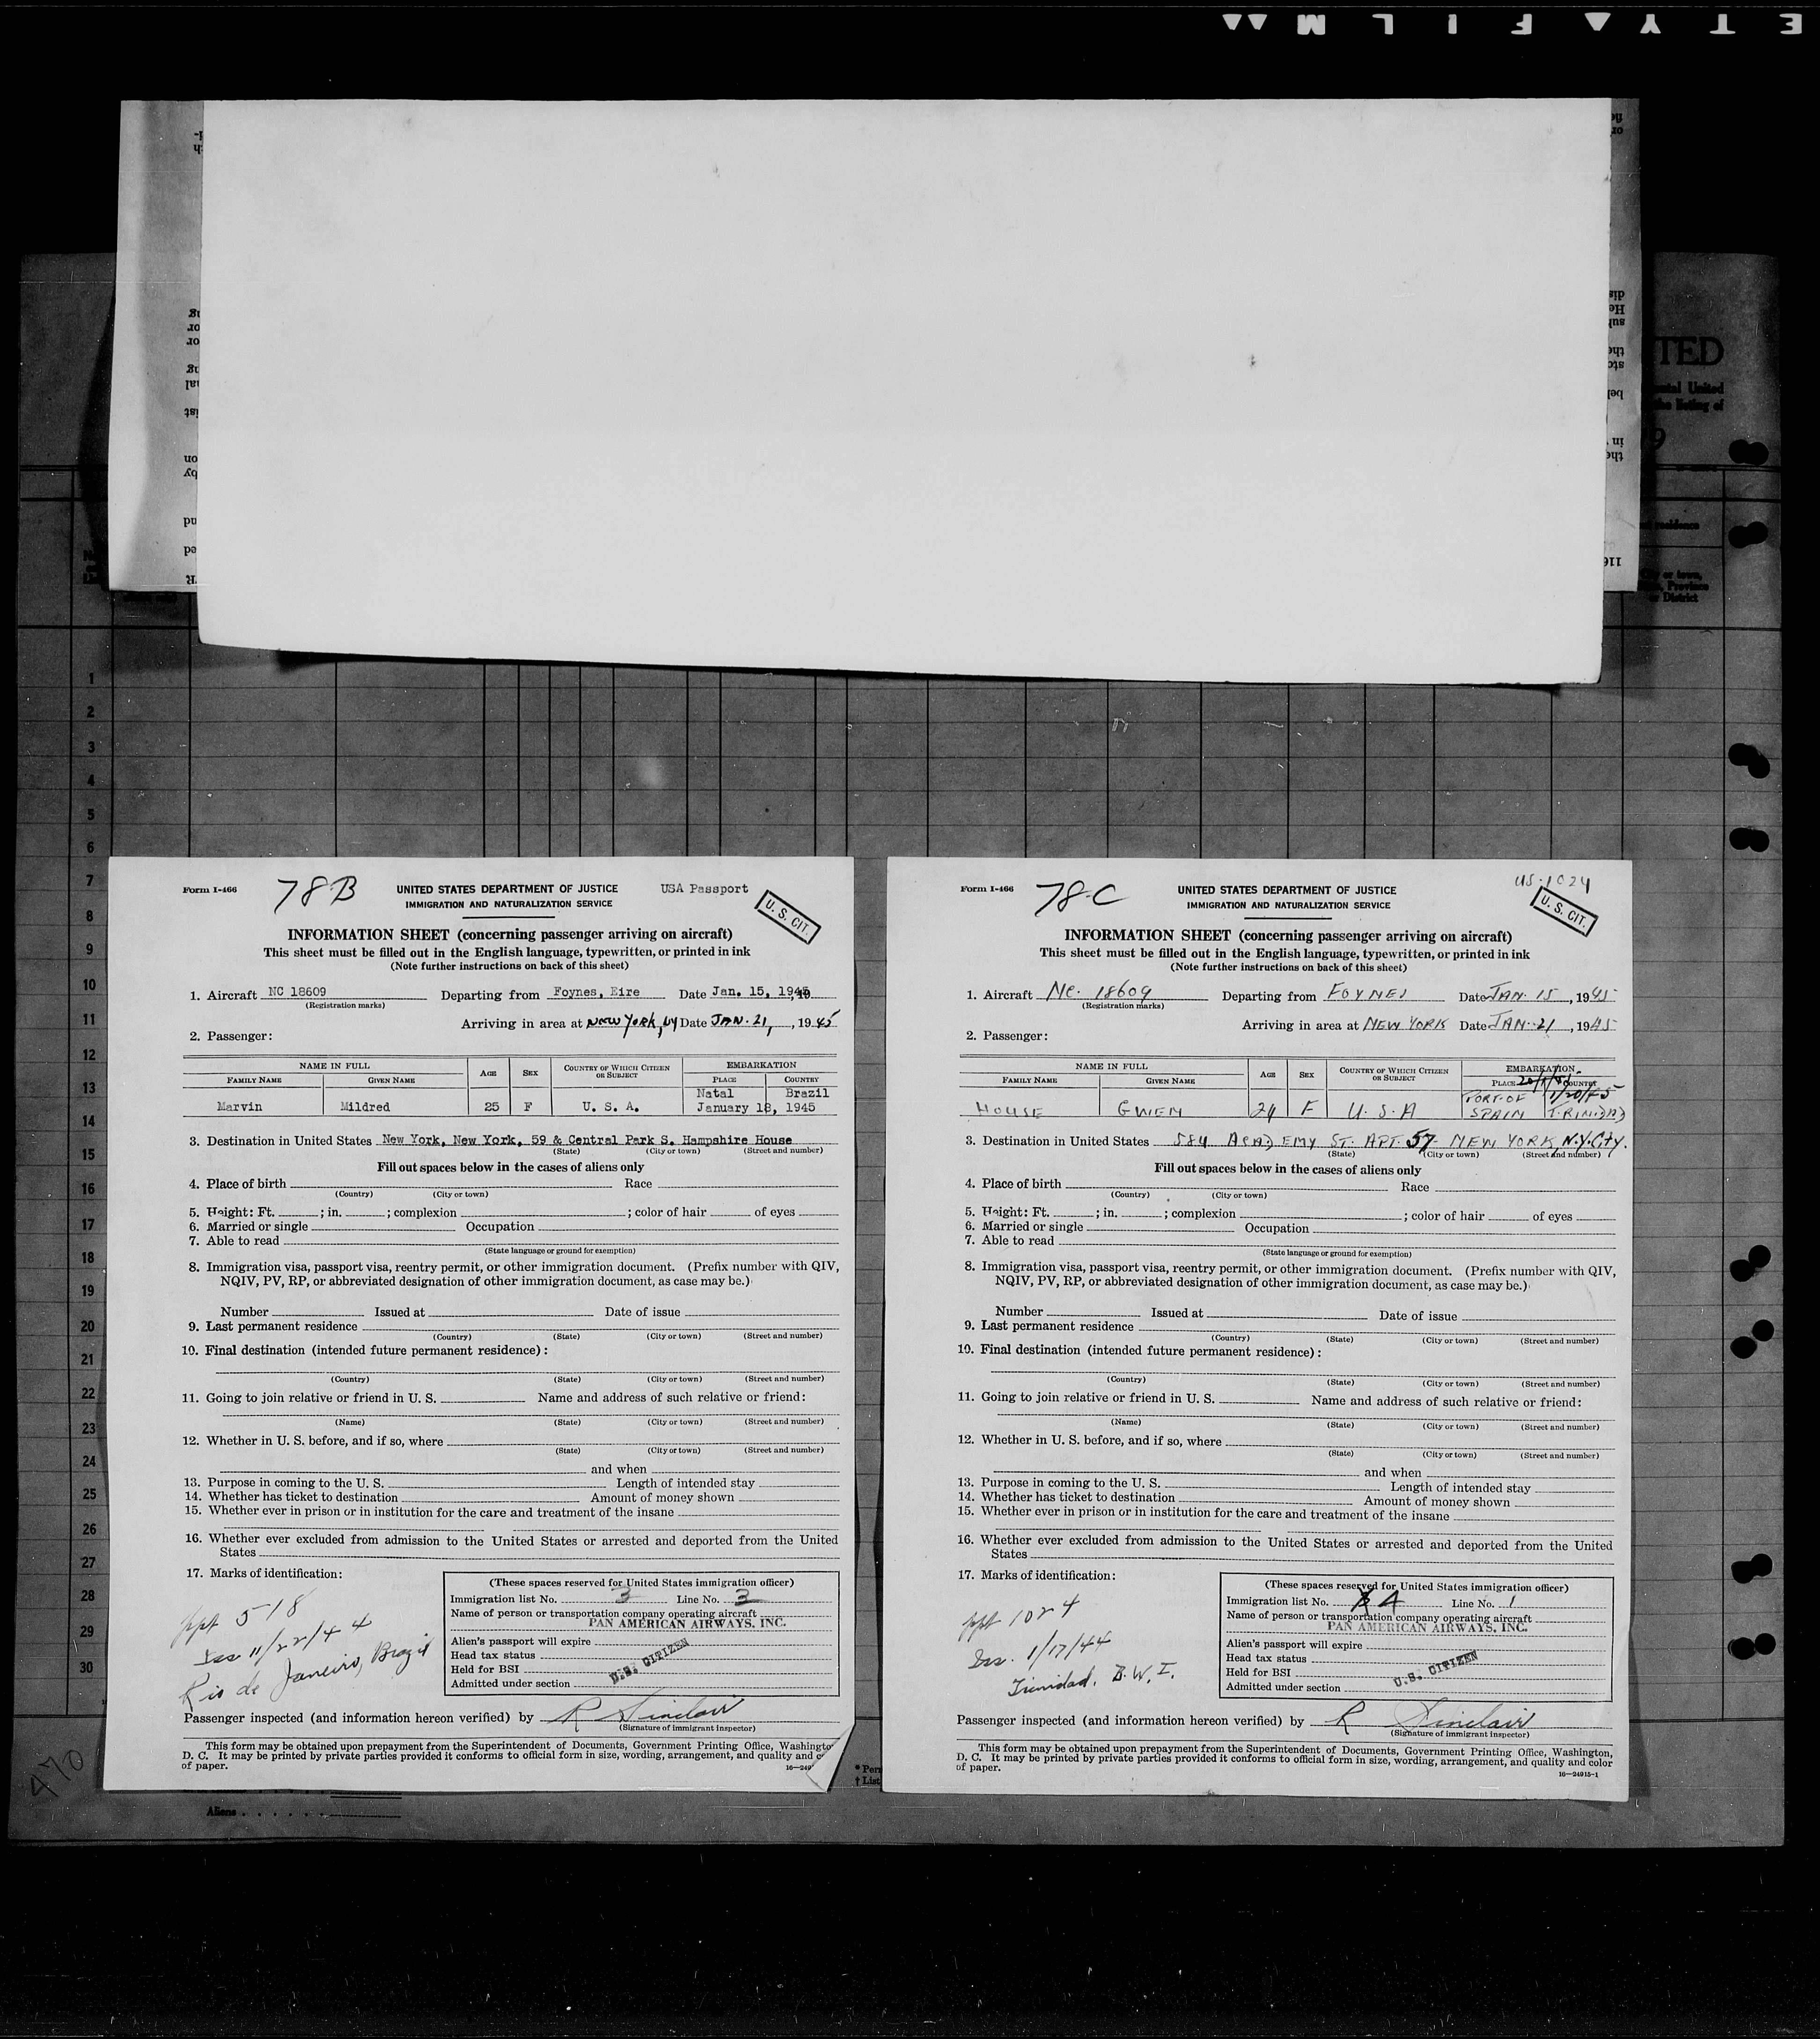 ETY FILM
TED
ental United
the listing of
9
residence
or town,
Province
or District
116
1
2
3
4
5
6
7
8
9
10
11
12
13
14
15
16
17
18
19
20
21
22
23
24
25
26
27
28
29
30
470
Aliens . . . . . .
* Per
† List
Form I-466
78B
UNITED STATES DEPARTMENT OF JUSTICE
IMMIGRATION AND NATURALIZATION SERVICE
USA Passport
U. S. CIT.
INFORMATION SHEET (concerning passenger arriving on aircraft)
This sheet must be filled out in the English language, typewritten, or printed in ink
(Note further instructions on back of this sheet)
1. Aircraft NC 18609 Departing from Foynes, Eire Date Jan. 15, 1945, 19
(Registration marks)
Arriving in area at New York, NY Date JAN. 21, , 1945
2. Passenger:
NAME IN FULL AGE SEX COUNTRY OF WHICH CITIZEN OR SUBJECT EMBARKATION
FAMILY NAME GIVEN NAME PLACE COUNTRY
Natal Brazil
Marvin Mildred 25 F U. S. A. January 18, 1945
3. Destination in United States New York, New York, 59 & Central Park S. Hampshire House
(State) (City or town) (Street and number)
Fill out spaces below in the cases of aliens only
4. Place of birth Race
(Country) (City or town)
5. Height: Ft. ; in. ; complexion ; color of hair of eyes
6. Married or single Occupation
7. Able to read
(State language or ground for exemption)
8. Immigration visa, passport visa, reentry permit, or other immigration document. (Prefix number with QIV,
NQIV, PV, RP, or abbreviated designation of other immigration document, as case may be.)
Number Issued at Date of issue
9. Last permanent residence
(Country) (State) (City or town) (Street and number)
10. Final destination (intended future permanent residence):
(Country) (State) (City or town) (Street and number)
11. Going to join relative or friend in U. S. Name and address of such relative or friend:
(Name) (State) (City or town) (Street and number)
12. Whether in U. S. before, and if so, where
(State) (City or town) (Street and number)
and when
13. Purpose in coming to the U. S. Length of intended stay
14. Whether has ticket to destination Amount of money shown
15. Whether ever in prison or in institution for the care and treatment of the insane
16. Whether ever excluded from admission to the United States or arrested and deported from the United
States
17. Marks of identification:
ppt 518
Iss 11/22/44
Rio de Janeiro, Brazil
(These spaces reserved for United States immigration officer)
Immigration list No. 3 Line No. 2
Name of person or transportation company operating aircraft
PAN AMERICAN AIRWAYS. INC.
Alien's passport will expire
Head tax status
Held for BSI
Admitted under section
U.S. CITIZEN
Passenger inspected (and information hereon verified) by R Sinclair
(Signature of immigrant inspector)
This form may be obtained upon prepayment from the Superintendent of Documents, Government Printing Office, Washington
D. C. It may be printed by private parties provided it conforms to official form in size, wording, arrangement, and quality and
of paper.
16—249
Form I-466
78-C
UNITED STATES DEPARTMENT OF JUSTICE
IMMIGRATION AND NATURALIZATION SERVICE
US-1024
U. S. CIT.
INFORMATION SHEET (concerning passenger arriving on aircraft)
This sheet must be filled out in the English language, typewritten, or printed in ink
(Note further instructions on back of this sheet)
1. Aircraft NC. 18609 Departing from FOYNES Date JAN. 15, 1945
(Registration marks)
Arriving in area at NEW YORK Date JAN. 21, 1945
2. Passenger:
NAME IN FULL AGE SEX COUNTRY OF WHICH CITIZEN OR SUBJECT EMBARKATION
FAMILY NAME GIVEN NAME PLACE COUNTRY
1/20/45
PORT-OF
HOUSE GWEN 24 F U.S.A SPAIN TRINIDAD
3. Destination in United States 584 ACADEMY ST. APT. 57 NEW YORK, N.Y. City.
(State) (City or town) (Street and number)
Fill out spaces below in the cases of aliens only
4. Place of birth Race
(Country) (City or town)
5. Height: Ft. ; in. ; complexion ; color of hair of eyes
6. Married or single Occupation
7. Able to read
(State language or ground for exemption)
8. Immigration visa, passport visa, reentry permit, or other immigration document. (Prefix number with QIV,
NQIV, PV, RP, or abbreviated designation of other immigration document, as case may be.)
Number Issued at Date of issue
9. Last permanent residence
(Country) (State) (City or town) (Street and number)
10. Final destination (intended future permanent residence):
(Country) (State) (City or town) (Street and number)
11. Going to join relative or friend in U. S. Name and address of such relative or friend:
(Name) (State) (City or town) (Street and number)
12. Whether in U. S. before, and if so, where
(State) (City or town) (Street and number)
and when
13. Purpose in coming to the U. S. Length of intended stay
14. Whether has ticket to destination Amount of money shown
15. Whether ever in prison or in institution for the care and treatment of the insane
16. Whether ever excluded from admission to the United States or arrested and deported from the United
States
17. Marks of identification:
ppt 1024
Iss. 1/17/44
Trinidad, B.W.I.
(These spaces reserved for United States immigration officer)
Immigration list No. A Line No. 1
Name of person or transportation company operating aircraft
PAN AMERICAN AIRWAYS, INC.
Alien's passport will expire
Head tax status
Held for BSI
Admitted under section
U.S. CITIZEN
Passenger inspected (and information hereon verified) by R Sinclair
(Signature of immigrant inspector)
This form may be obtained upon prepayment from the Superintendent of Documents, Government Printing Office, Washington,
D. C. It may be printed by private parties provided it conforms to official form in size, wording, arrangement, and quality and color
of paper.
16—24915-1